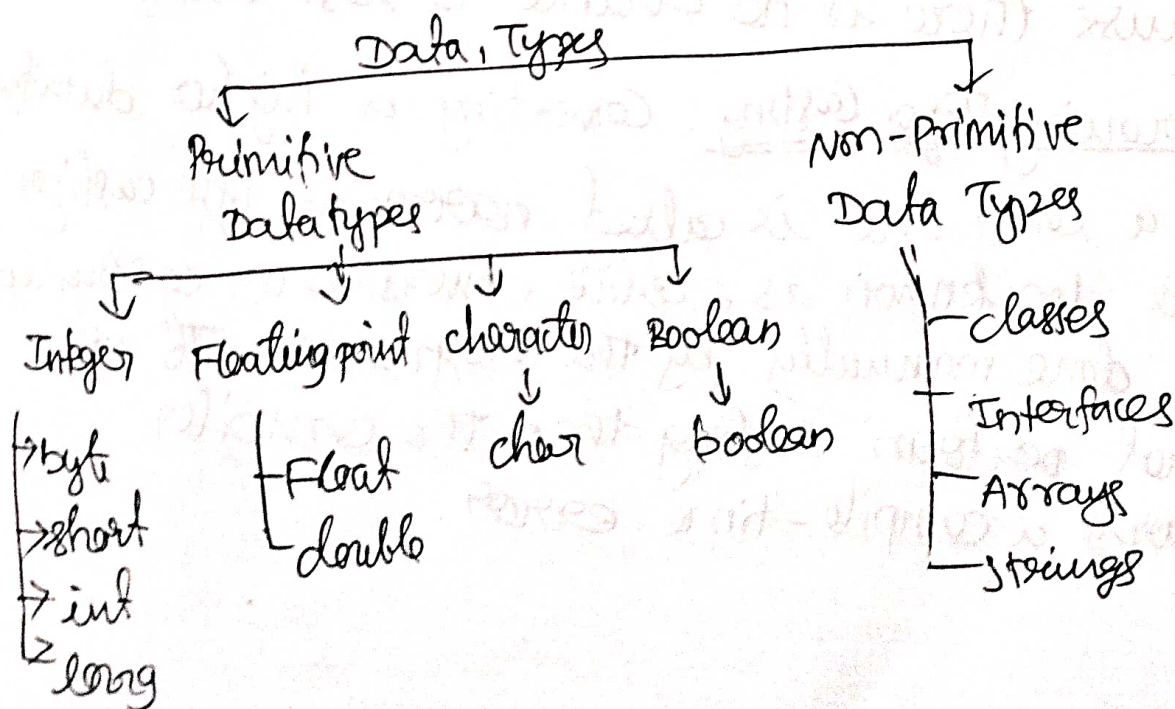 Data Types
Primitive
Datatypes
Non-Primitive
Data Types
Integer
Floating point
character
Boolean
byte
short
int
long
Float
double
char
boolean
classes
Interfaces
Arrays
Strings